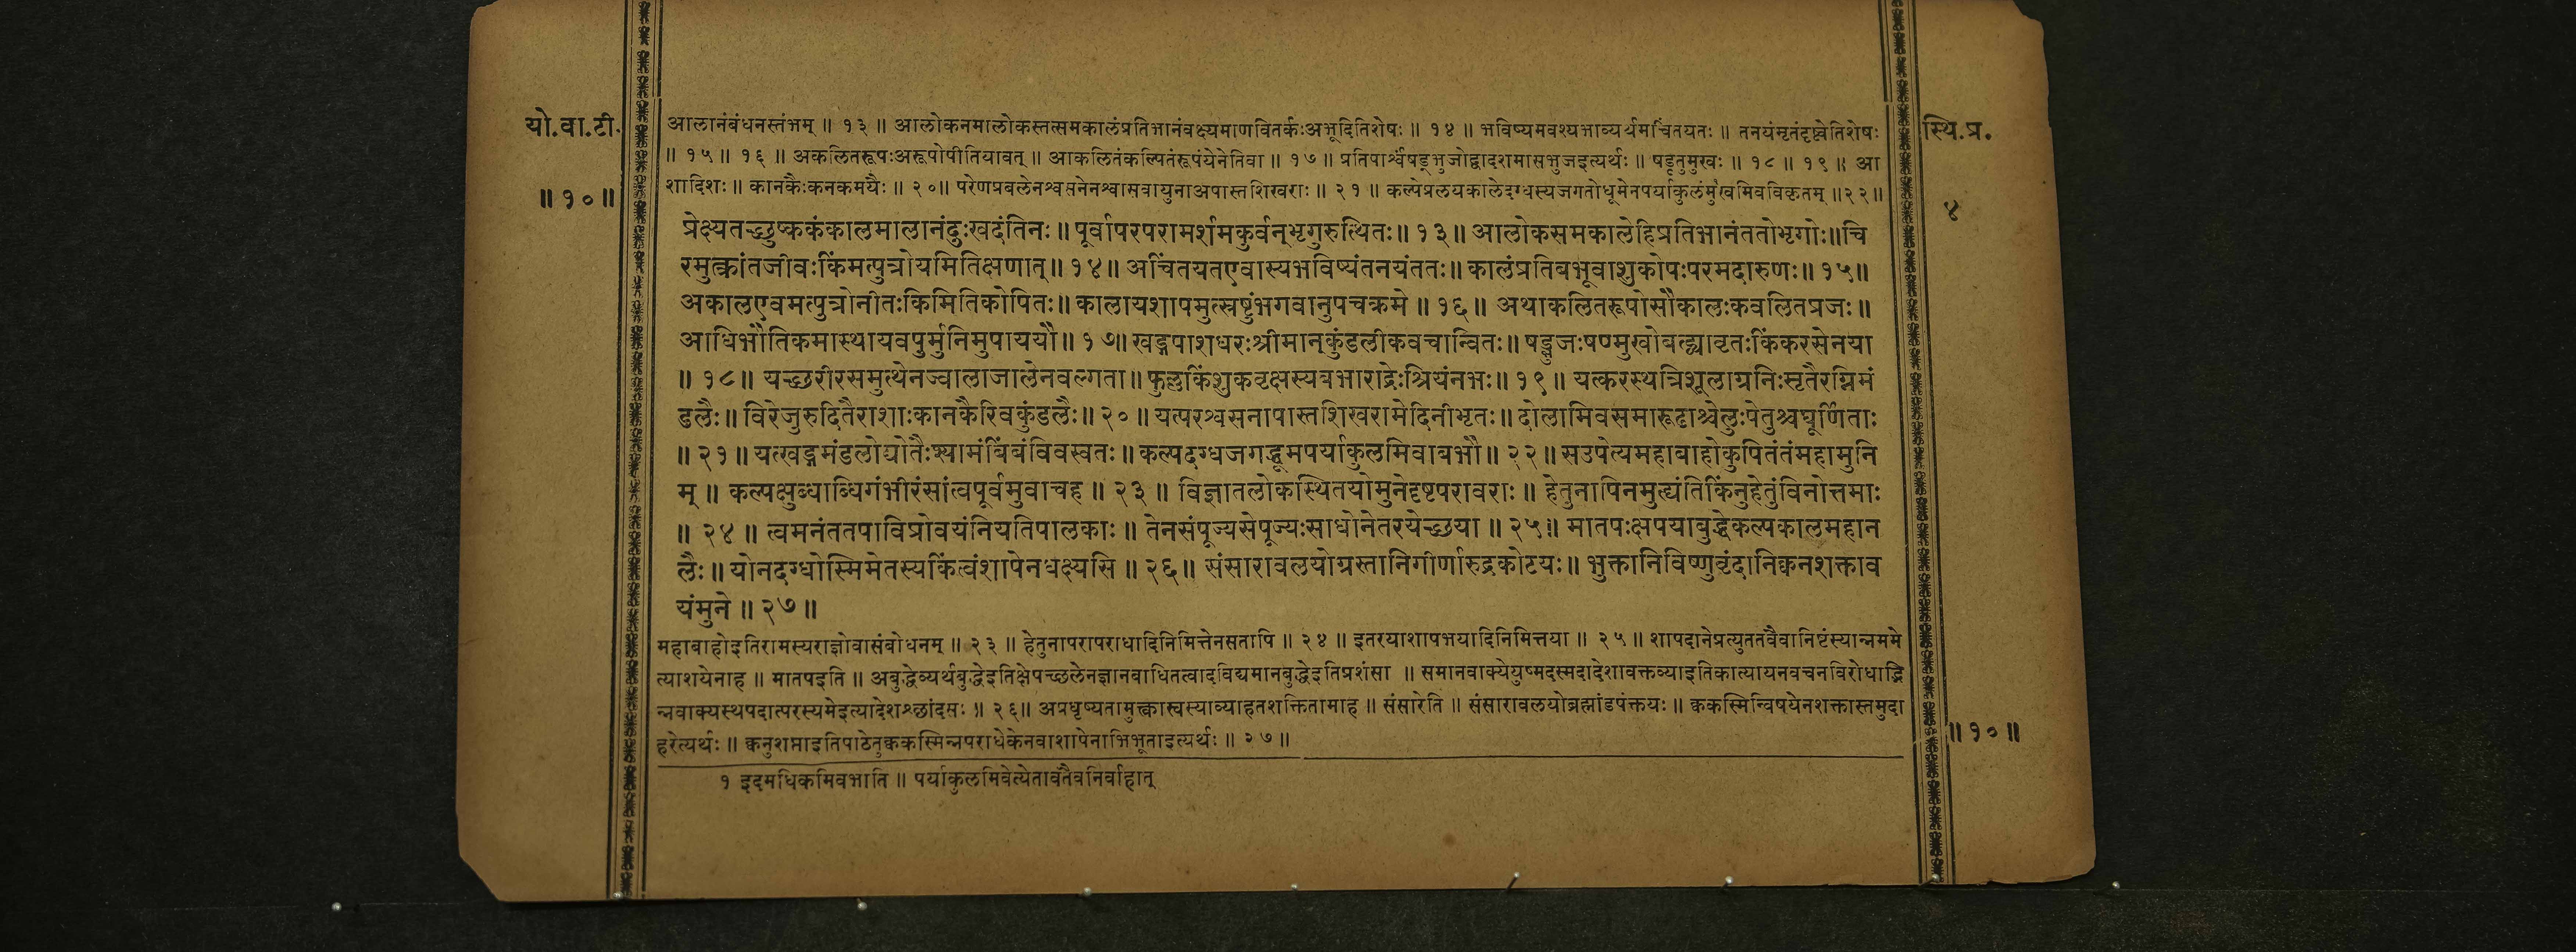 यो.वा.टी.
॥१०॥
स्थि.प्र.
४
आलानंबंधनस्तंभम् ॥ १३ ॥ आलोकनमालोकस्तत्समकालंप्रतिभानंवक्ष्यमाणवितर्कःअभूदितिशेषः ॥ १४ ॥ भविष्यमवश्यभाव्यर्थमचिंतयतः ॥ तनयंमृतंदृष्ट्वेतिशेषः
॥ १५ ॥ १६ ॥ अकलितरूपःअरूपोपीतियावत् ॥ आकलितंकल्पितंरूपंयेनेतिवा ॥ १७ ॥ प्रतिपार्श्वंषड्भुजोद्वादशमासभुजइत्यर्थः ॥ षडृतुमुखः ॥ १८ ॥ १९ ॥ आ
शादिशः ॥ कानकैःकनकमयैः ॥ २० ॥ परेणप्रबलेनश्वसनेनश्वासवायुनाअपास्तशिखराः ॥ २१ ॥ कल्पेप्रलयकालेदग्धस्यजगतोधूमेनपर्याकुलंमु१खमिवविकृतम् ॥२२॥
प्रेक्ष्यतच्छुष्ककंकालमालानंदुःखदंतिनः ॥ पूर्वापरपरामर्शमकुर्वन्भृगुरुत्थितः ॥ १३ ॥ आलोकसमकालेहिप्रतिभानंततोभृगोः ॥ चि
रमुत्क्रांतजीवःकिंमत्पुत्रोयमितिक्षणात् ॥ १४ ॥ अचिंतयतएवास्यभविष्यंतनयंततः ॥ कालंप्रतिबभूवाशुकोपःपरमदारुणः ॥ १५ ॥
अकालएवमत्पुत्रोनीतःकिमितिकोपितः ॥ कालायशापमुत्स्रष्टुंभगवानुपचक्रमे ॥ १६ ॥ अथाकलितरूपोसौकालःकवलितप्रजः ॥
आधिभौतिकमास्थायवपुर्मुनिमुपाययौ ॥ १७ ॥ खड्गपाशधरःश्रीमान्कुंडलीकवचान्वितः ॥ षड्भुजःषण्मुखोबह्व्यावृतःकिंकरसेनया
॥ १८ ॥ यच्छरीरसमुत्थेनज्वालाजालेनवल्गता ॥ फुल्लकिंशुकवृक्षस्यबभाराद्रेःश्रियंनभः ॥ १९ ॥ यत्करस्थत्रिशूलाग्रनिःसृतैरग्निमं
डलैः ॥ विरेजुरुदितैराशाःकानकैरिवकुंडलैः ॥ २० ॥ यत्परश्वसनापास्तशिखरामेदिनीभृतः ॥ दोलामिवसमारूढाश्चेलुःपेतुश्चघूर्णिताः
॥ २१ ॥ यत्खड्गमंडलोद्योतैःश्यामंबिंबंविवस्वतः ॥ कल्पदग्धजगद्धूमपर्याकुलमिवाबभौ ॥ २२ ॥ सउपेत्यमहाबाहोकुपितंतंमहामुनि
म् ॥ कल्पक्षुब्धाब्धिगंभीरंसांत्वपूर्वमुवाचह ॥ २३ ॥ विज्ञातलोकस्थितयोमुनेदृष्टपरावराः ॥ हेतुनापिनमुह्यंतिकिंनुहेतुंविनोत्तमाः
॥ २४ ॥ त्वमनंततपाविप्रोवयंनियतिपालकाः ॥ तेनसंपूज्यसेपूज्यःसाधोनेतरयेच्छया ॥ २५ ॥ मातपःक्षपयाबुद्धेकल्पकालमहान
लैः ॥ योनदग्धोस्मिमेतस्यकिंत्वंशापेनधक्ष्यसि ॥ २६ ॥ संसारावलयोग्रस्तानिगीर्णारुद्रकोटयः ॥ भुक्तानिविष्णुवृंदानिक्वनशक्ताव
यंमुने ॥ २७ ॥
महाबाहोइतिरामस्यराज्ञोवासंबोधनम् ॥ २३ ॥ हेतुनापरापराधादिनिमित्तेनसतापि ॥ २४ ॥ इतरयाशापभयादिनिमित्तया ॥ २५ ॥ शापदानेप्रत्युततवैवानिष्टंस्यान्नममे
त्याशयेनाह ॥ मातपइति ॥ अबुद्धेव्यर्थबुद्धेइतिक्षेपच्छलेनज्ञानबाधितत्वादविद्यमानबुद्धेइतिप्रशंसा ॥ समानवाक्येयुष्मदस्मदादेशावक्तव्याइतिकात्यायनवचनविरोधाद्भि
न्नवाक्यस्थपदात्परस्यमेइत्यादेशश्छांदसः ॥ २६ ॥ अप्रधृष्यतामुक्त्वास्वस्याव्याहतशक्तितामाह ॥ संसारेति ॥ संसारावलयोब्रह्मांडपंक्तयः ॥ क्वकस्मिन्विषयेनशक्तास्तमुदा
हरेत्यर्थः ॥ क्वनुशप्ताइतिपाठेतुक्वकस्मिन्नपराधेकेनवाशापेनाभिभूताइत्यर्थः ॥ २७ ॥
॥१०॥
१ इदमधिकमिवभाति ॥ पर्याकुलमिवेत्येतावतैवनिर्वाहात्